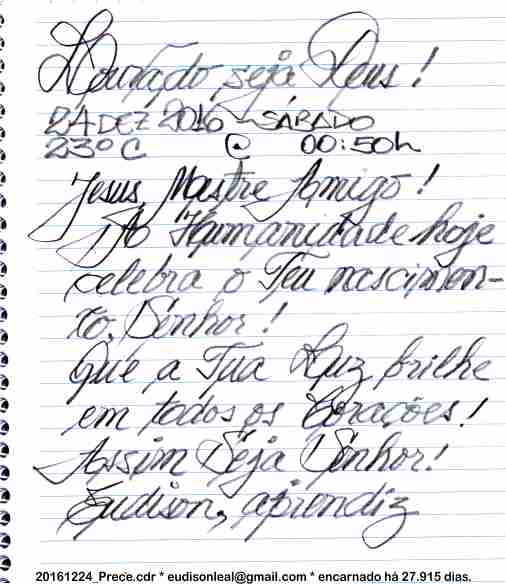 Louvado seja Deus!
24 DEZ 2016 ~ SÁBADO
23º C @ 00:50h
Jesus, Mestre Amigo!
A Humanidade hoje
celebra o Teu nascimen-
to, Senhor!
Que a Tua Luz brilhe
em todos os Corações!
Assim Seja Senhor!
Eudison, aprendiz
20161224_Prece.cdr * eudisonleal@gmail.com * encarnado há 27.915 dias.